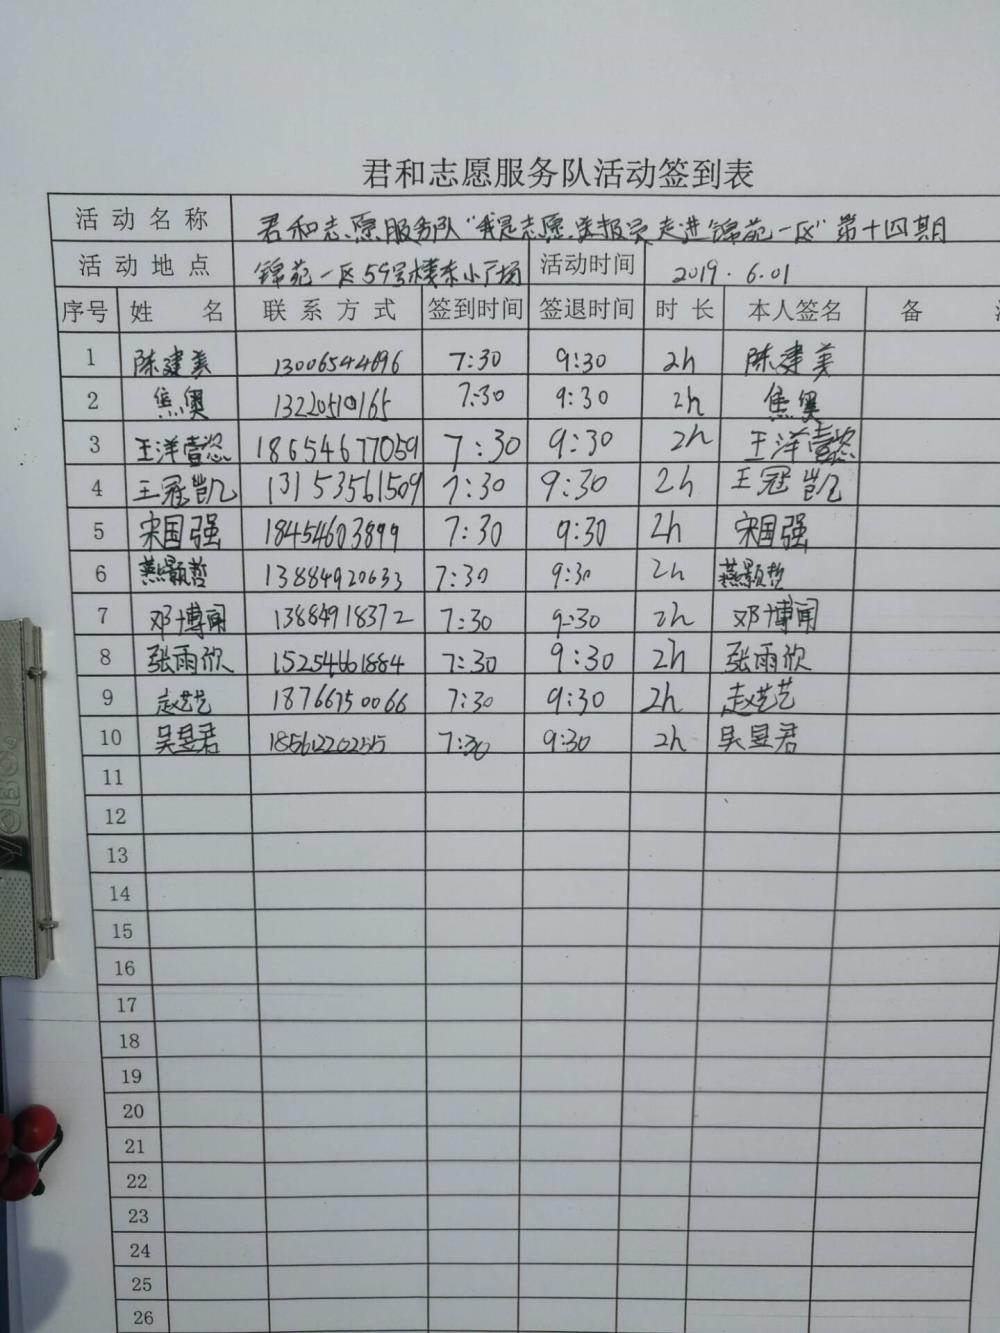 君和志愿服务队活动签到表
活动名称 君和志愿服务队“我是志愿 报 走进锦苑一区”第十四期
活动地点 锦苑一区59号楼东小广场 活动时间 2019.6.01
序号 姓名 联系方式 签到时间 签退时间 时长 本人签名 备
1 陈建美 13006544696 7:30 9:30 2h 陈建美
2 焦奥 13220510165 7:30 9:30 2h 焦奥
3 王洋壹恣 18654677059 7:30 9:30 2h 王洋壹恣
4 王冠凯 13153561509 7:30 9:30 2h 王冠凯
5 宋国强 18454603899 7:30 9:30 2h 宋国强
6 燕颢哲 13884920633 7:30 9:30 2h 燕颢哲
7 邓博闻 13884918372 7:30 9:30 2h 邓博闻
8 张雨欣 15254661884 7:30 9:30 2h 张雨欣
9 赵艺艺 18766750066 7:30 9:30 2h 赵艺艺
10 吴昱君 7:30 9:30 2h 吴昱君
11
12
13
14
15
16
17
18
19
20
21
22
23
24
25
26